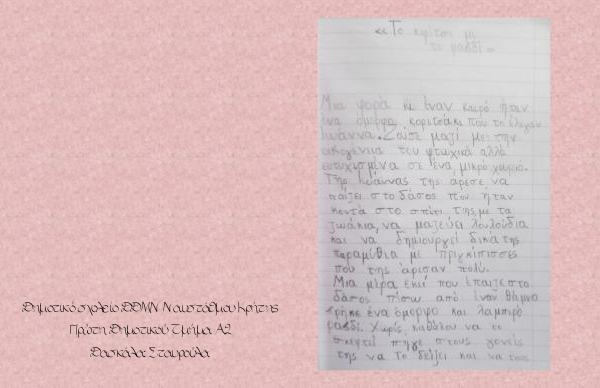 «Το κορίτσι με
το ραβδί»
Μια φορά κι έναν καιρό ήταν
ένα όμορφο κοριτσάκι που το έλεγαν
Ιωάννα. Ζούσε μαζί με την
οικογένεια του φτωχικά αλλά
ευτυχισμένα σε ένα μικρό χωριό.
Της Ιωάννας της άρεσε να
παίζει στο δάσος που ήταν
κοντά στο σπίτι της με τα
ζωάκια, να μαζεύει λουλούδια
και να δημιουργεί δικά της
παραμύθια με πριγκίπισσες
που της άρεσαν πολύ.
Μια μέρα εκεί που έπαιζε στο
δάσος πίσω από έναν θάμνο
βρήκε ένα όμορφο και λαμπρό
ραβδί. Χωρίς καθόλου να το
σκεφτεί πήγε στους γονείς
της να το δείξει και να τους
Δημοτικό σχολείο ΔΔΜΝ Ναυστάθμου Κρήτης
Πρώτη Δημοτικού Τμήμα Α2
Δασκάλα Σταυρούλα